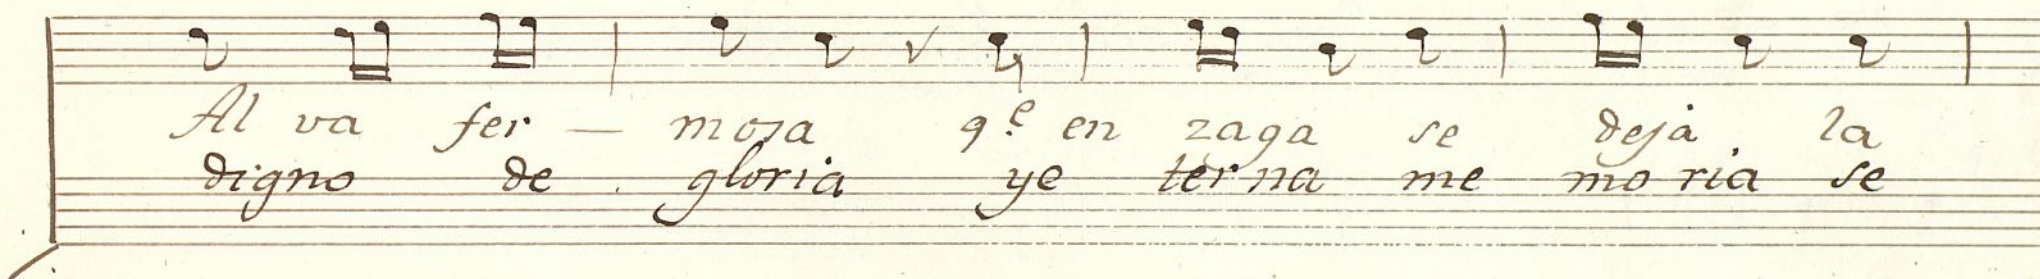 Al va fer — mosa q.e en zaga se deja la
digno de gloria ye terna me mo ria se